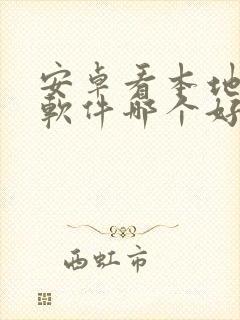 安卓看本地
軟件哪个好
西虹市